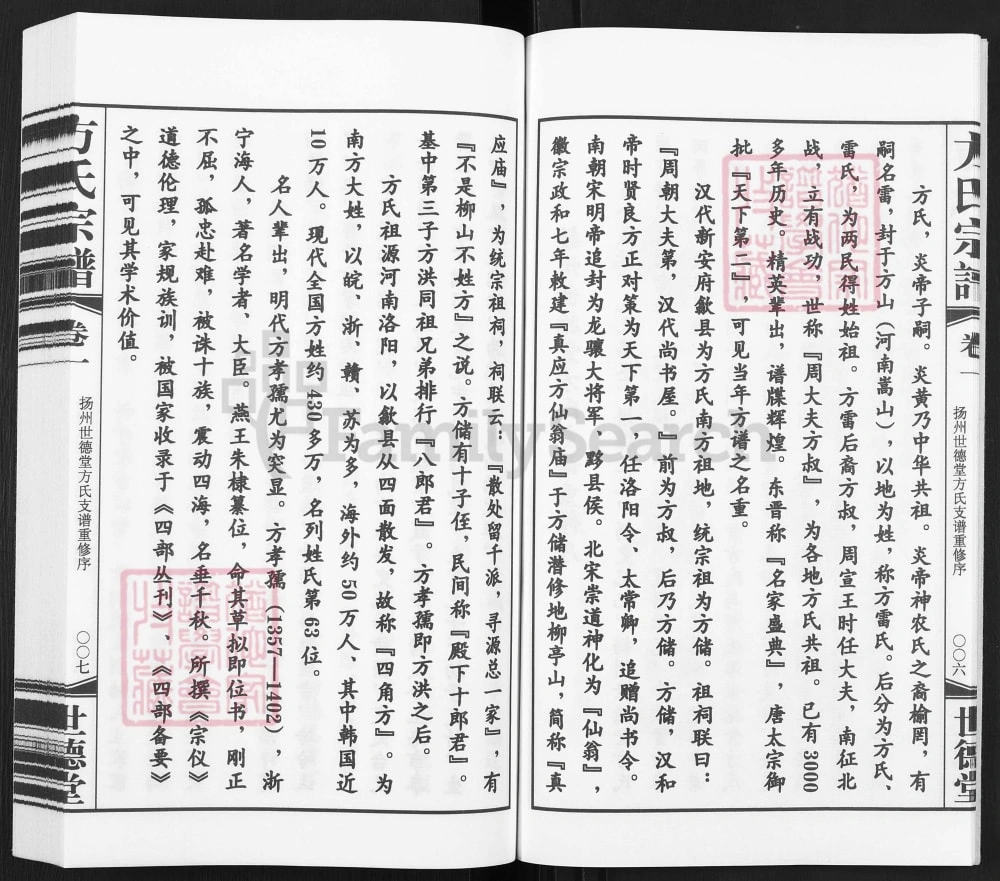 方氏宗谱
卷一
扬州世德堂方氏支谱重修序
〇〇六
世德堂
方氏，炎帝子嗣。炎黄乃中华共祖。炎帝神农氏之裔榆罔，有
嗣名雷，封于方山（河南嵩山），以地为姓，称方雷氏。后分为方氏、
雷氏，为两民得姓始祖。方雷后裔方叔，周宣王时任大夫，南征北
战，立有战功，世称『周大夫方叔』，为各地方氏共祖。已有3000
多年历史。精英辈出，谱牒辉煌。东晋称『名家盛典』，唐太宗御
批『天下第二』，可见当年方谱之名重。
汉代新安府歙县为方氏南方祖地，统宗祖为方储。祖祠联曰：
『周朝大夫第，汉代尚书屋。』前为方叔，后乃方储。方储，汉和
帝时贤良方正对策为天下第一，任洛阳令、太常卿，追赠尚书令。
南朝宋明帝追封为龙骧大将军 黟县侯。北宋崇道神化为『仙翁』，
徽宗政和七年敕建『真应方仙翁庙』于方储潜修地柳亭山，简称『真
应庙』，为统宗祖祠，祠联云：『散处留千派，寻源总一家』，有
『不是柳山不姓方』之说。方储有十子侄，民间称『殿下十郎君』。
基中第三子方洪同祖兄弟排行『八郎君』。方孝孺即方洪之后。
方氏祖源河南洛阳，以歙县从四面散发，故称『四角方』。为
南方大姓，以皖、浙、赣、苏为多，海外约50万人、其中韩国近
10万人。现代全国方姓约430多万，名列姓氏第63位。
名人辈出，明代方孝孺尤为突显。方孝孺（1357—1402），浙
宁海人，著名学者、大臣。燕王朱棣篡位，命其草拟即位书，刚正
不屈，孤忠赴难，被诛十族，震动四海，名垂千秋。所撰《宗仪》
道德伦理，家规族训，被国家收录于《四部丛刊》、《四部备要》
之中，可见其学术价值。
方氏宗谱
卷一
扬州世德堂方氏支谱重修序
〇〇七
世德堂
FamilySearch